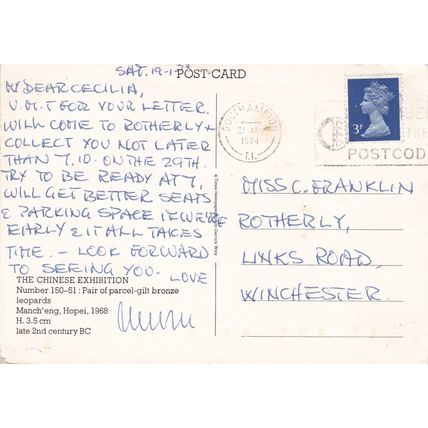 SAT. 19-1-74
POST CARD
MY DEAR CECILIA,
V.M.T FOR YOUR LETTER.
WILL COME TO ROTHERLY &
COLLECT YOU NOT LATER
THAN 7.10. ON THE 29TH.
TRY TO BE READY AT 7,
WILL GET BETTER SEATS
& PARKING SPACE IF WE'RE
EARLY & IT ALL TAKES
TIME. – LOOK FORWARD
TO SEEING YOU. LOVE
THE CHINESE EXHIBITION
Number 150–51: Pair of parcel-gilt bronze
leopards
Manch'eng, Hopei, 1968
H. 3.5 cm
late 2nd century BC
SOUTHAMPTON
21 JA
1974
T.1.
3P
THE
POSTCOD
MISS C. FRANKLIN
ROTHERLY,
LINKS ROAD,
WINCHESTER.